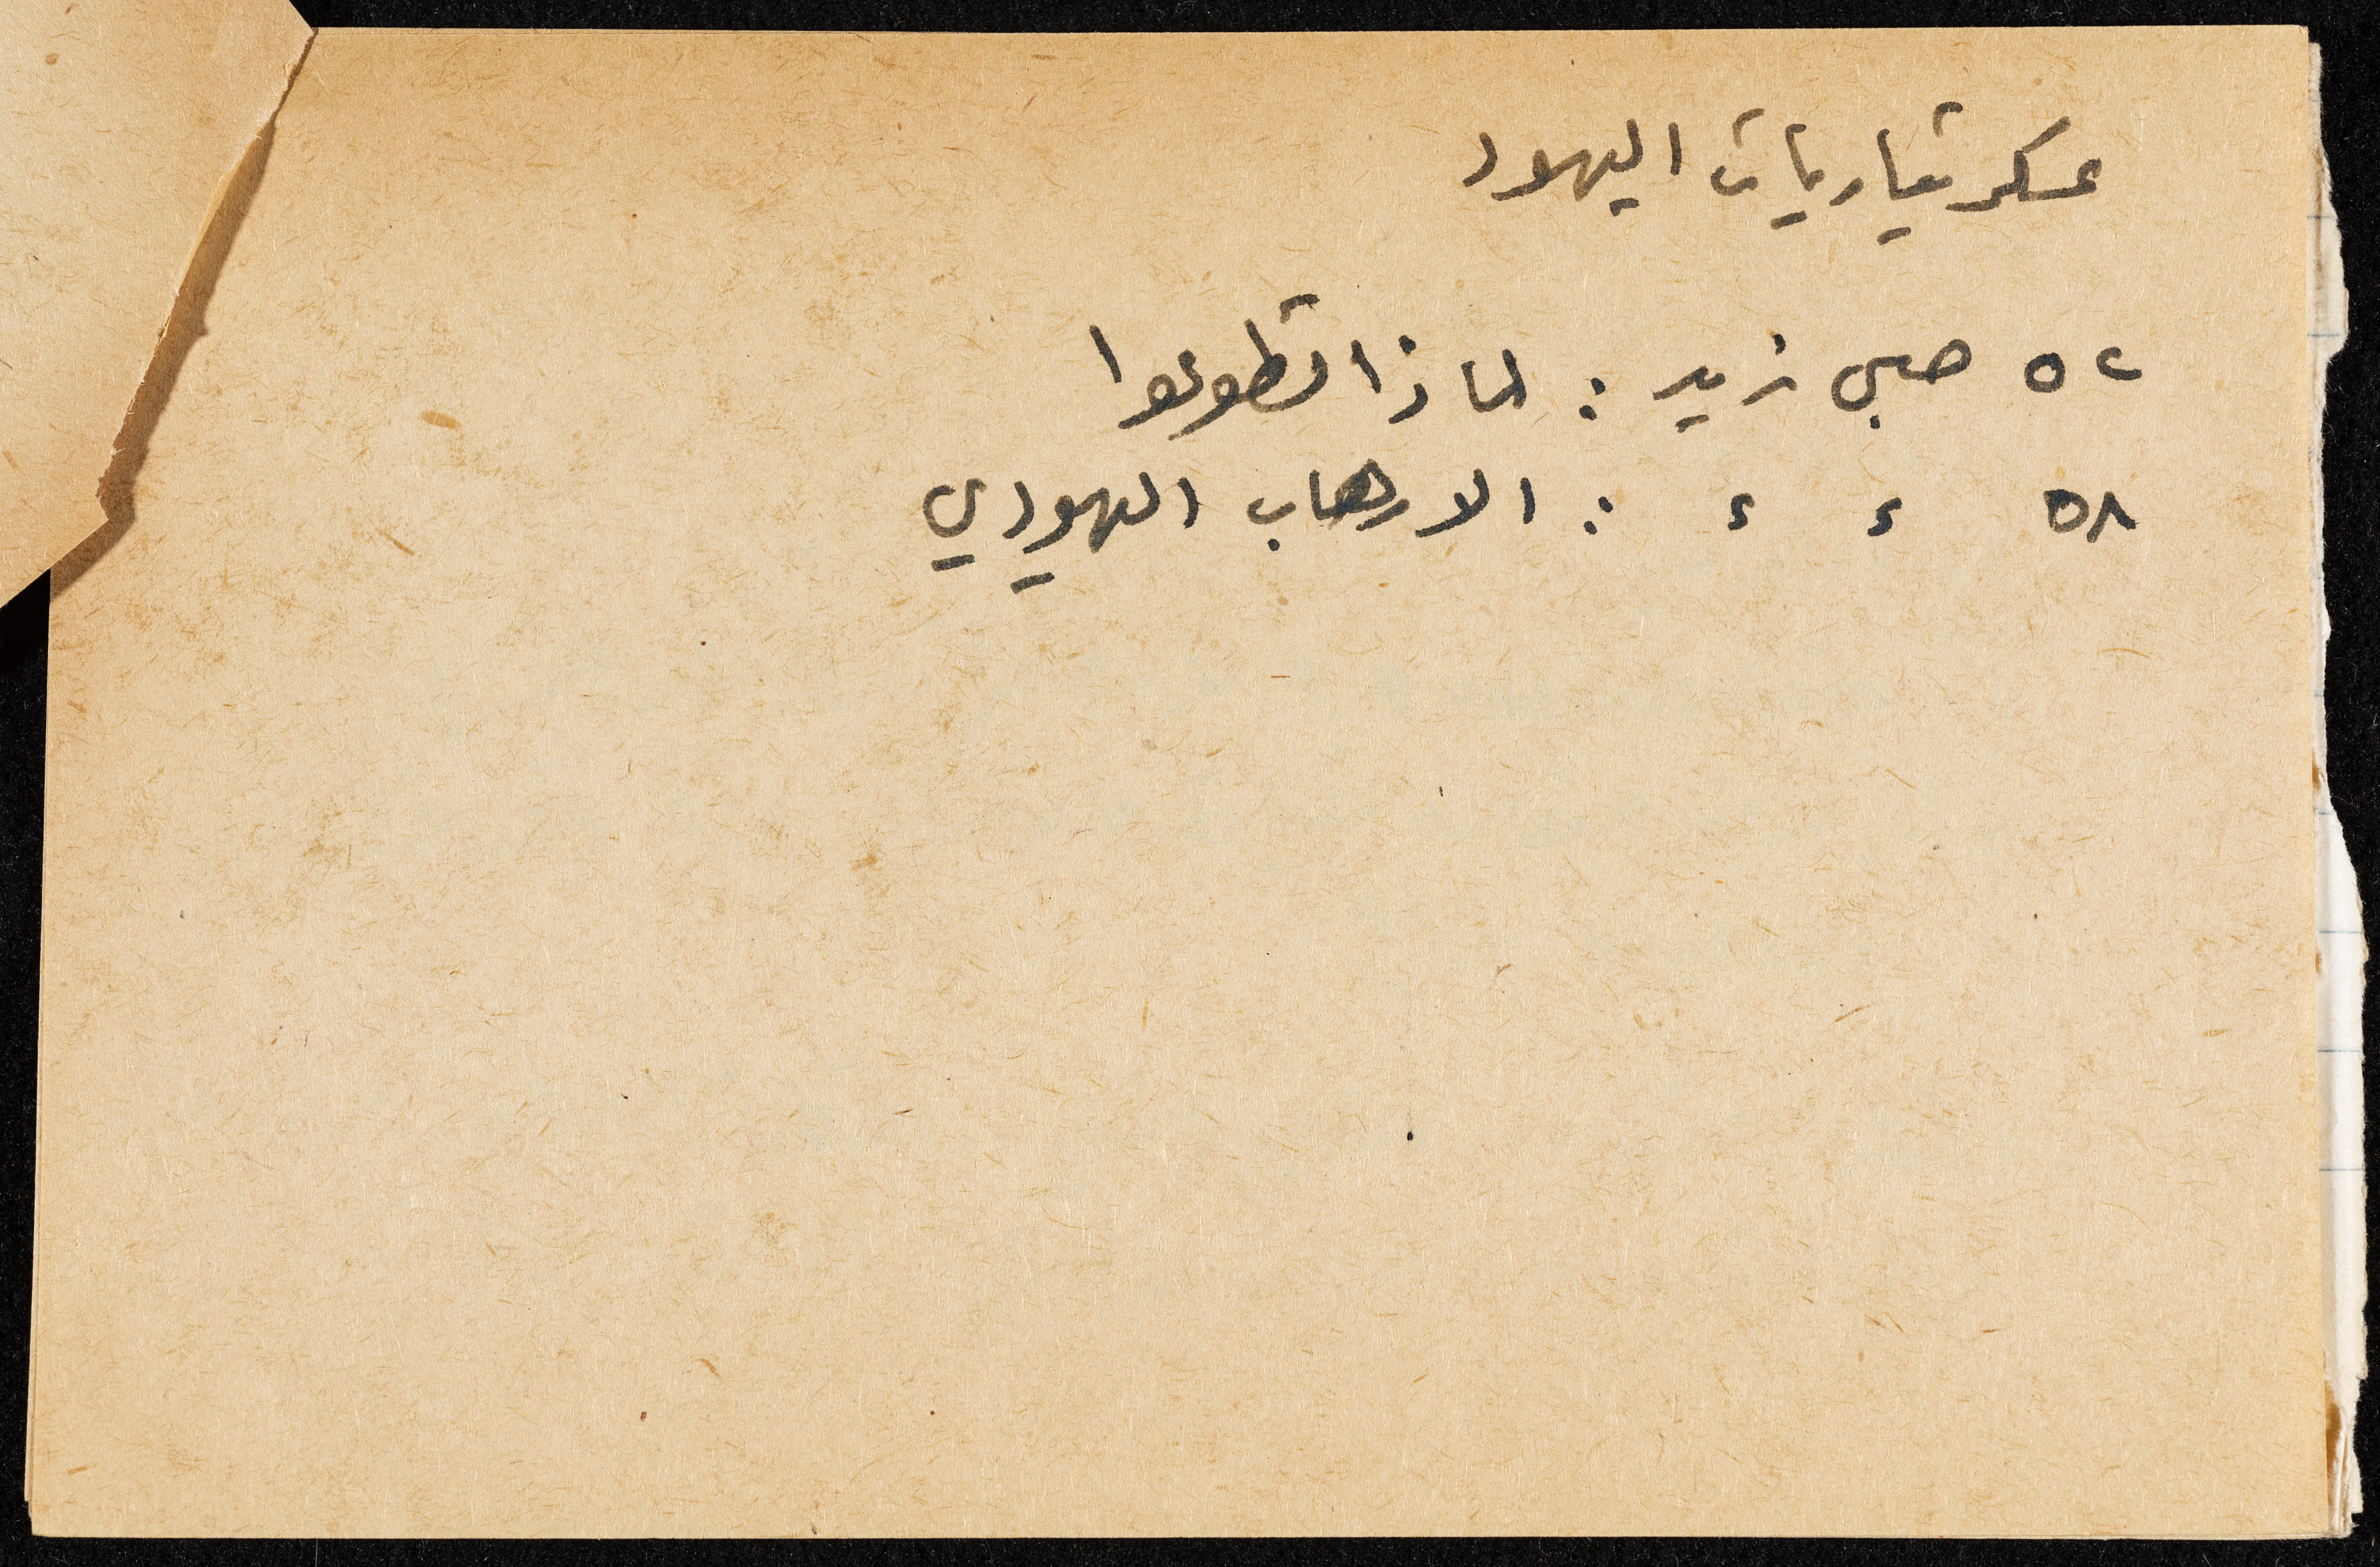 عسكريتاريات اليهود
٥٢ صبحي زيد : لماذا تطوعوا
٥٨ ء ء : الارهاب اليهودي